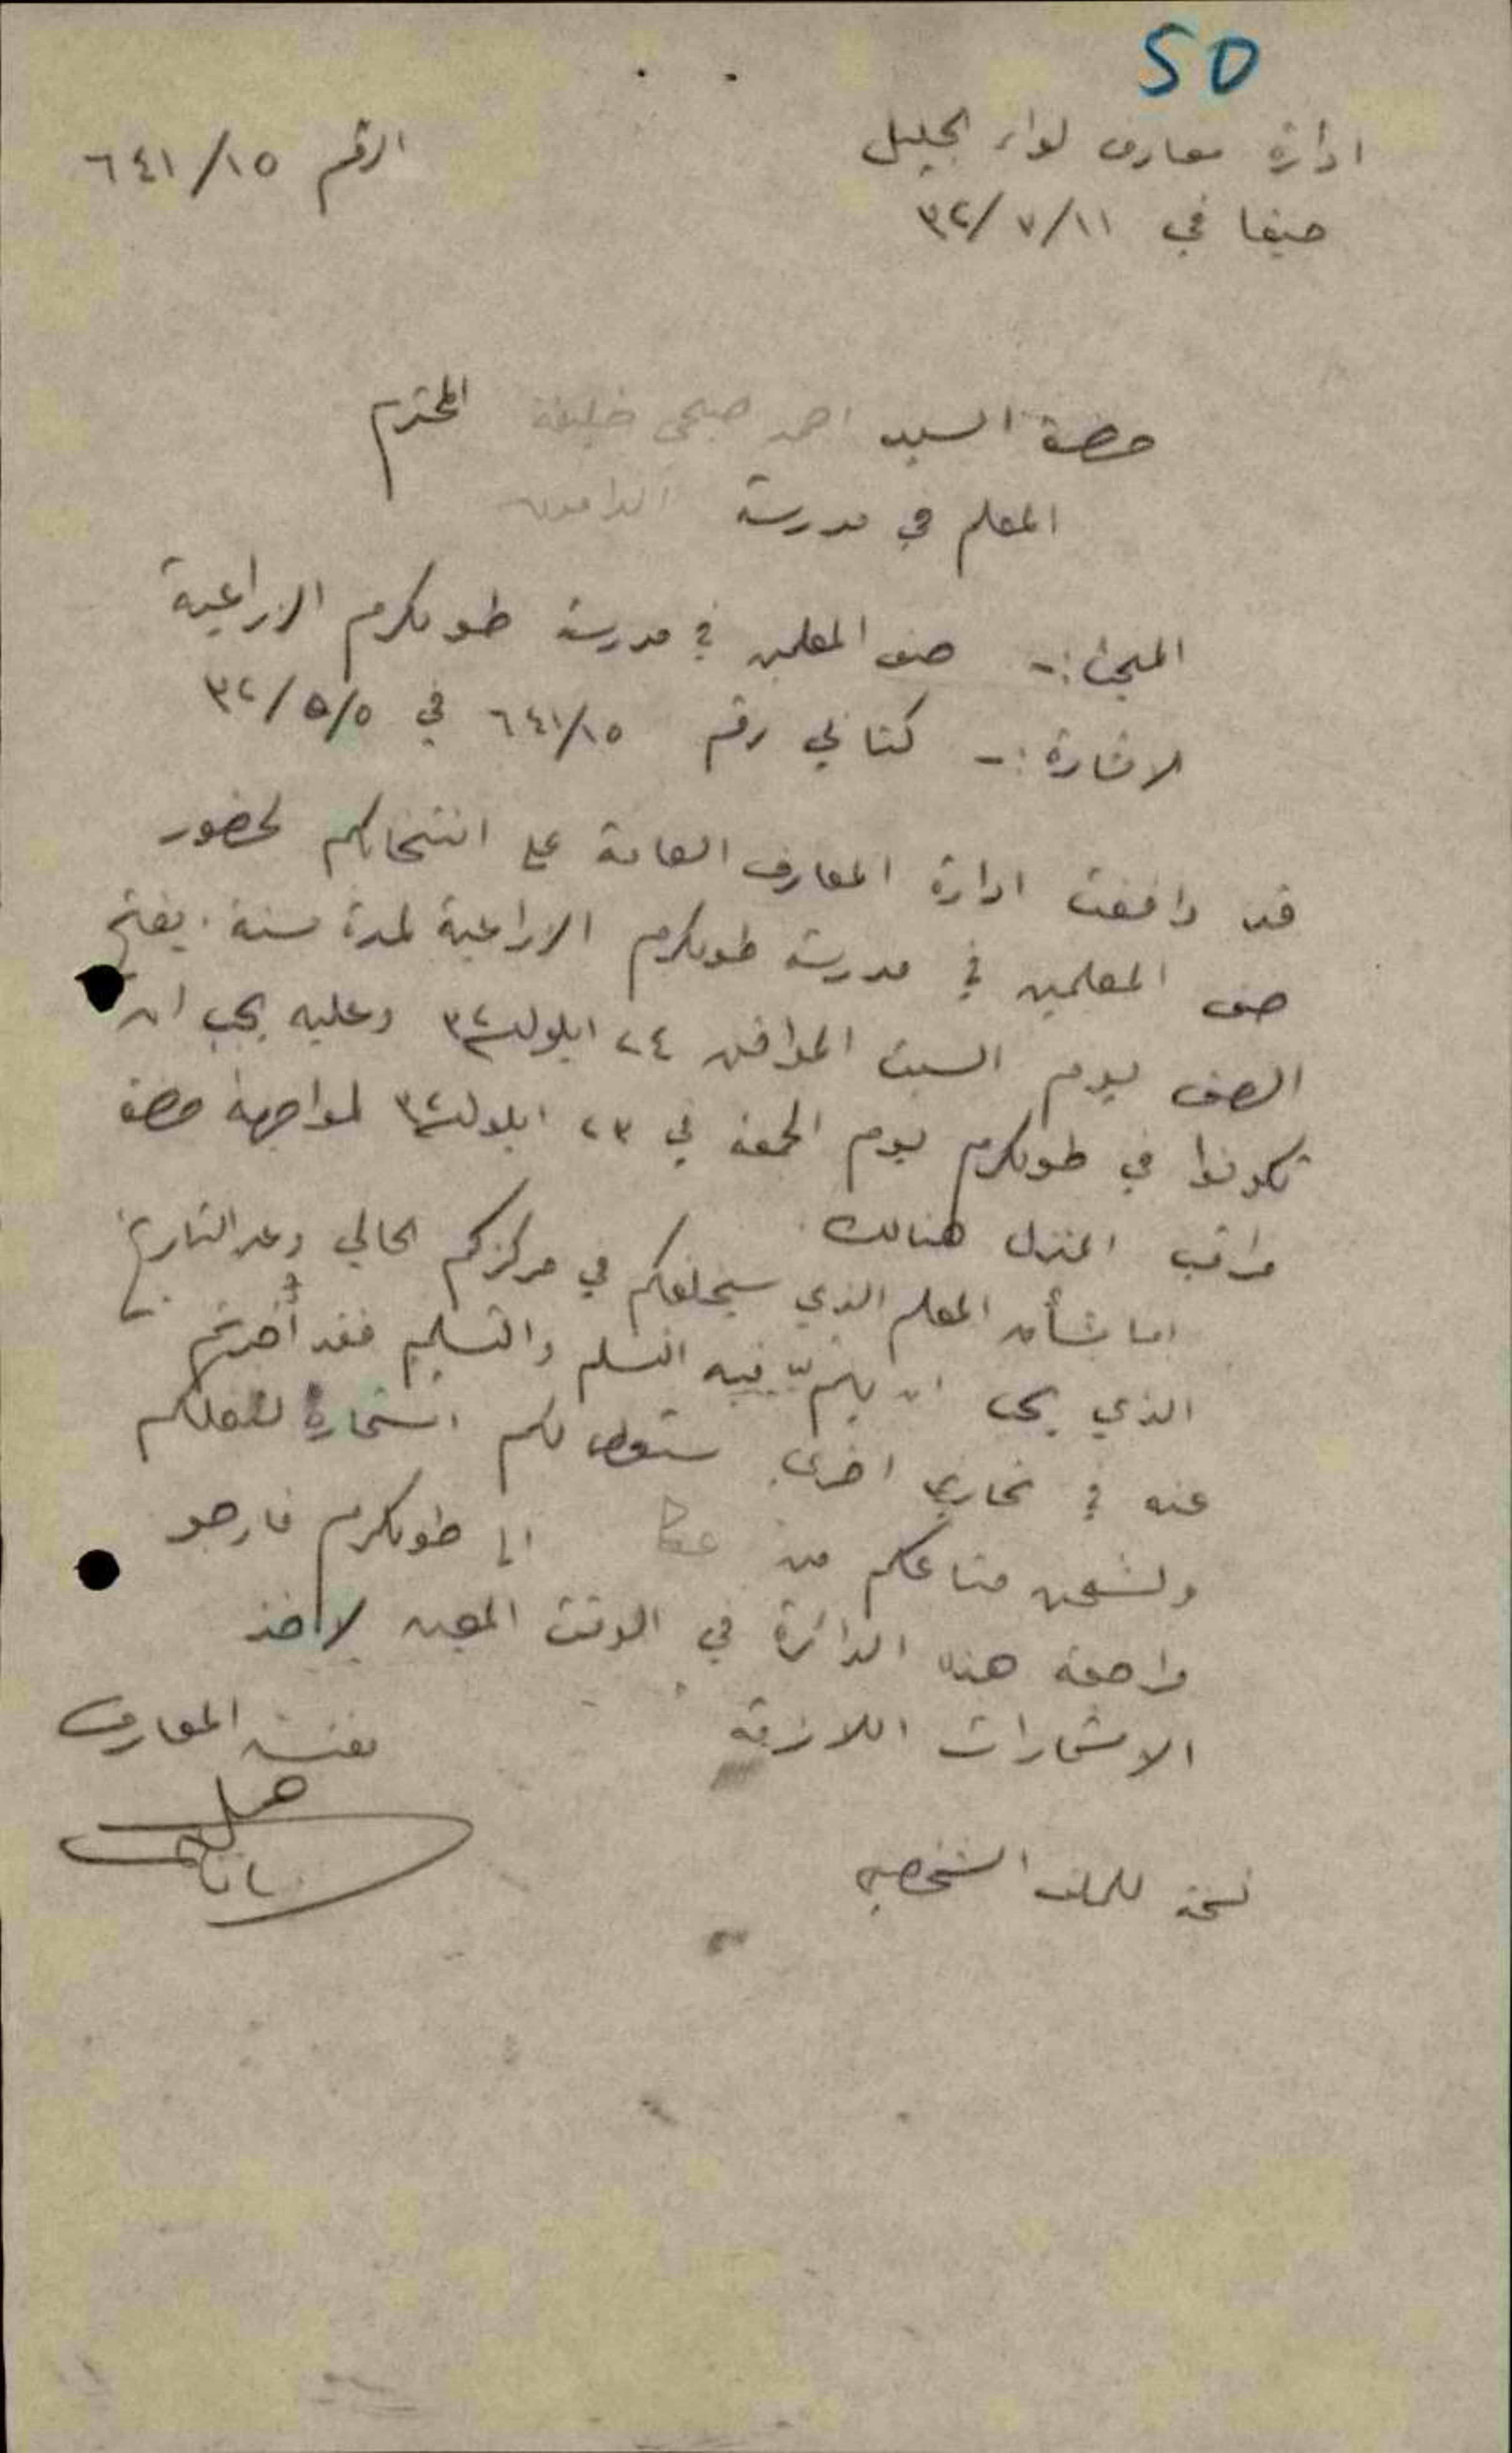 50
ادارة معارف لواء الجليل
الرقم ٦٤١/١٥
حيفا في ٣٢/٧/١١
حضرة السيد احمد صبحي خليفة المحترم
المعلم في مدرسة الدامون
المبحث :- صف المعلمين في مدرسة طولكرم الزراعية
الاشارة :- كتابي رقم ٦٤١/١٥ في ٣٢/٥/٥
قد وافقت ادارة المعارف العامة على انتخابكم لحضور
صف المعلمين في مدرسة طولكرم الزراعية لمدة سنة . يفتح
الصف يوم السبت الموافق ٢٤ ايلول ٣٢ وعليه يجب ان
تكونوا في طولكرم يوم الجمعة في ٢٣ ايلول ٣٢ لمواجهة حضرة
مراقب المنزل هنالك .
اما بشأن المعلم الذي سيخلفكم في مركزكم الحالي وعن التاريخ
الذي يجب ان يتم فيه التسلم والتسليم فقد
عنه في تحارير اخرى ستعطى لكم استمارة لنقلكم
ولشحن متاعكم من عكا الى طولكرم فارجو
مراجعة هذه الدائرة في الوقت المعين لاخذ
الاستمارات اللازمة
مفتش المعارف
نسخة للملف الشخصي